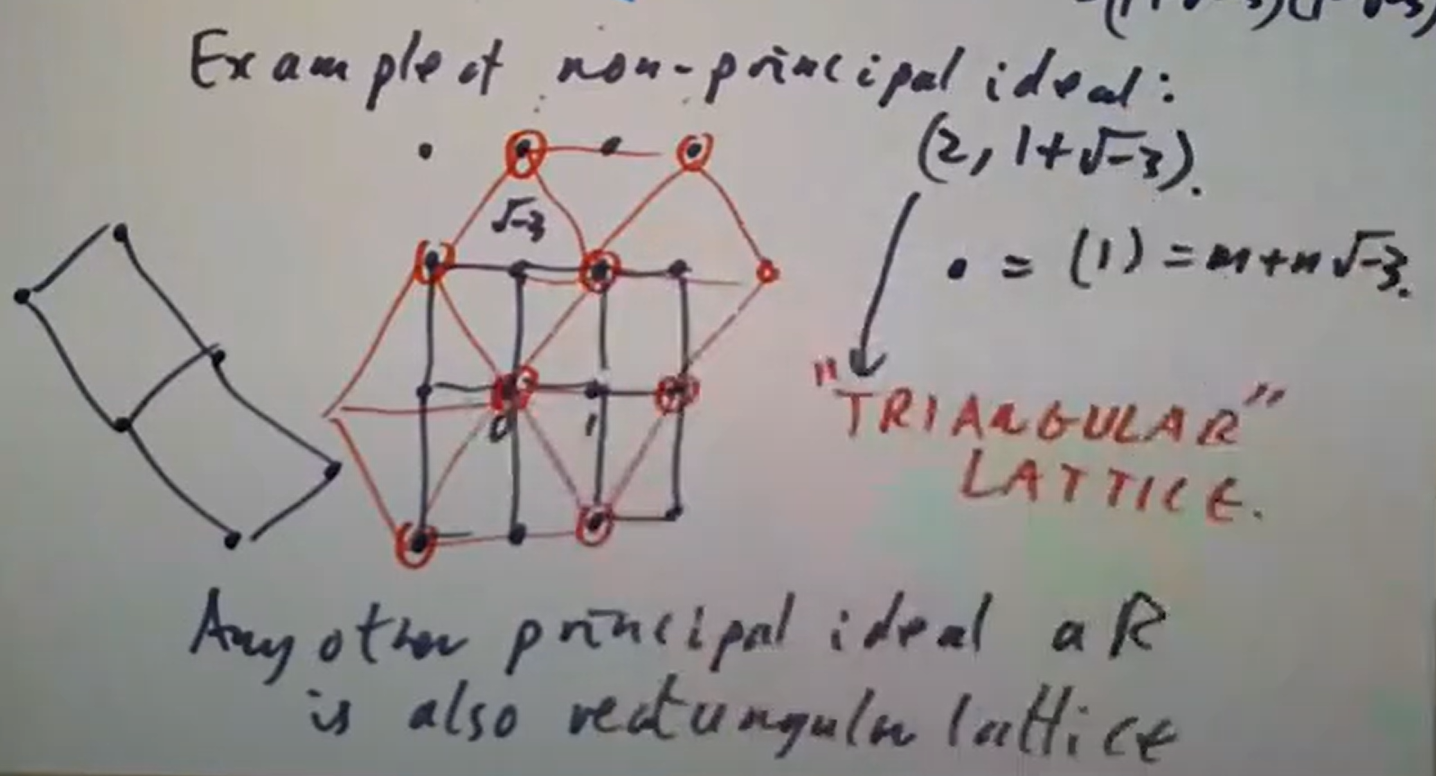 =(1+√-3)(1-√-3)
Example of non-principal ideal:
(2, 1+√-3).
√-3
• = (1) = m+n√-3.
0 1
"TRIANGULAR"
LATTICE.
Any other principal ideal aR
is also rectangular lattice